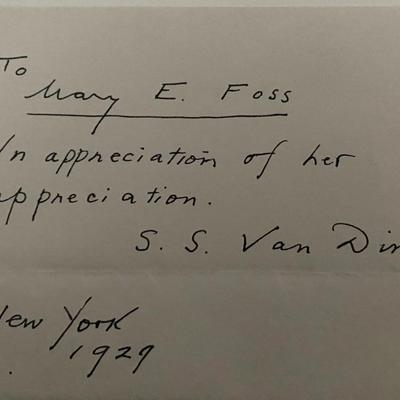 To
Mary E. Foss
In appreciation of her
appreciation.
S. S. Van Din
New York
1929